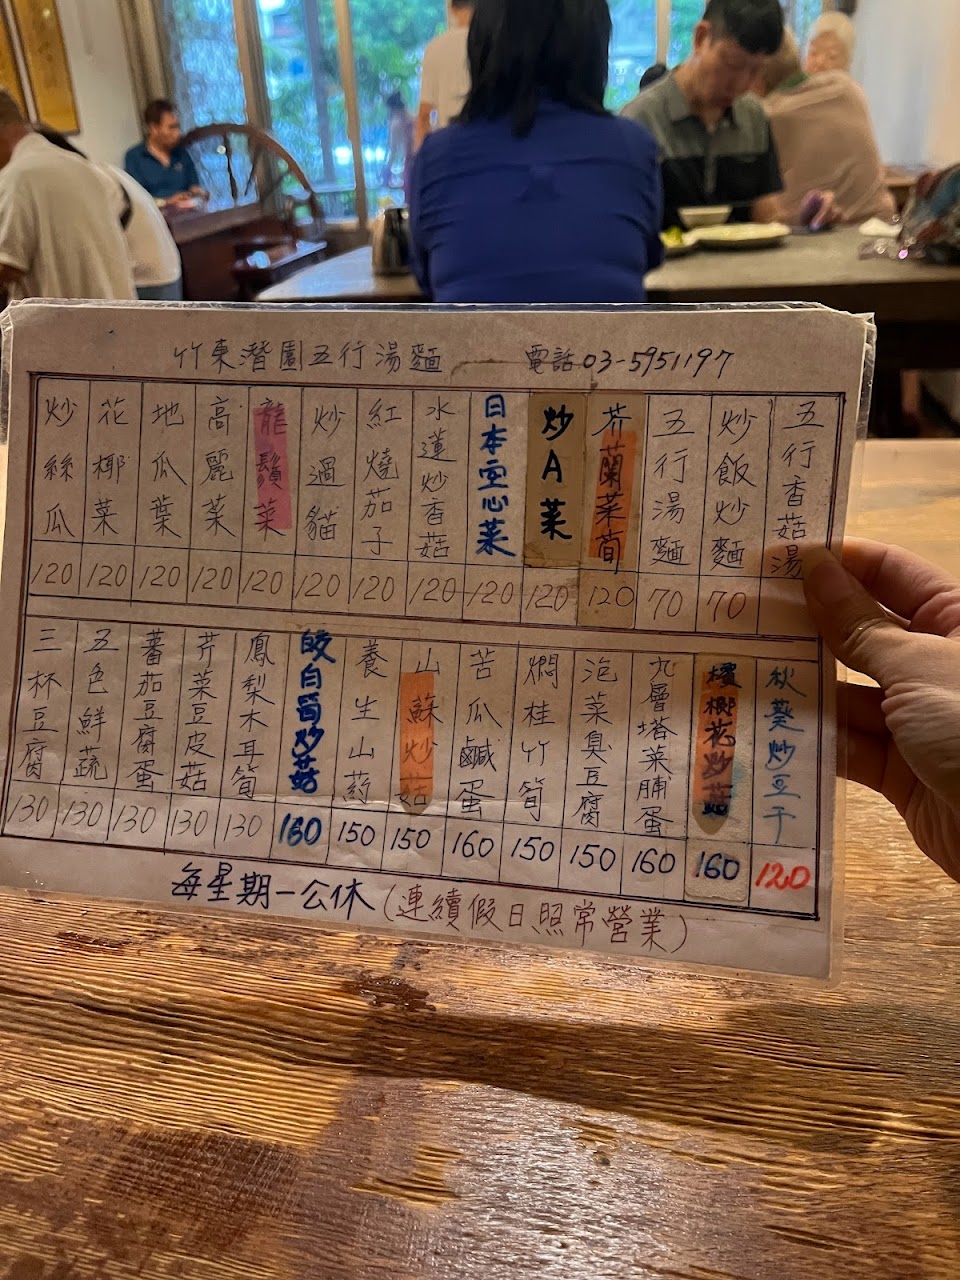 竹東潛園五行湯麵 電話 03-5951197
五行香菇湯
炒飯炒麵 70
五行湯麵 70
芥蘭菜荀 120
炒A菜 120
日本空心菜 120
水蓮炒香菇 120
紅燒茄子 120
炒過貓 120
龍鬚菜 120
高麗菜 120
地瓜葉 120
花椰菜 120
炒絲瓜 120
秋葵炒豆干 120
檳榔花炒菇 160
九層塔菜脯蛋 160
泡菜臭豆腐 150
燜桂竹筍 150
苦瓜鹹蛋 160
山蘇炒菇 150
養生山葯 150
皎白筍炒菇 160
鳳梨木耳筍 130
芹菜豆皮菇 130
蕃茄豆腐蛋 130
五色鮮蔬 130
三杯豆腐 130
每星期一公休(連續假日照常營業)